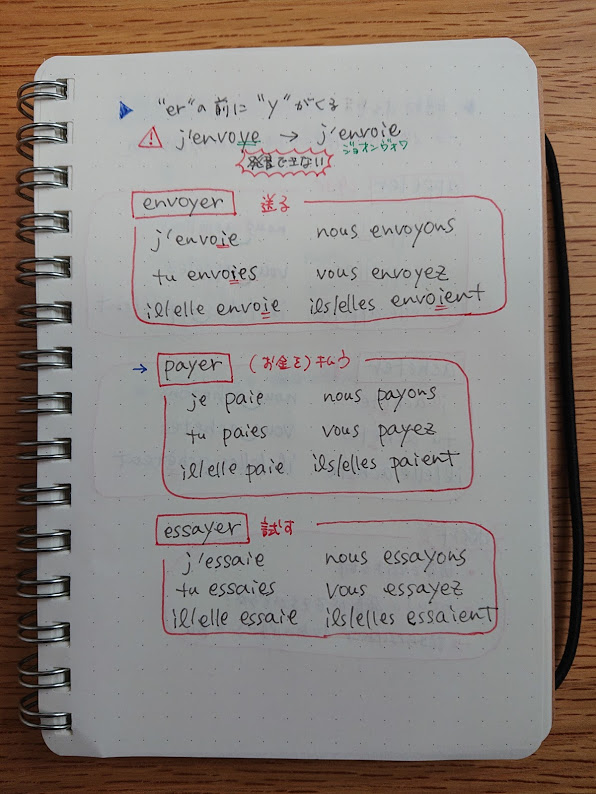 "er"の前に"y"がくる
j'envoye → j'envoie
発音できない ジョオンヴォワ
envoyer 送る
j'envoie nous envoyons
tu envoies vous envoyez
il/elle envoie ils/elles envoient
→ payer (お金を)払う
je paie nous payons
tu paies vous payez
il/elle paie ils/elles paient
essayer 試す
j'essaie nous essayons
tu essaies vous essayez
il/elle essaie ils/elles essaient